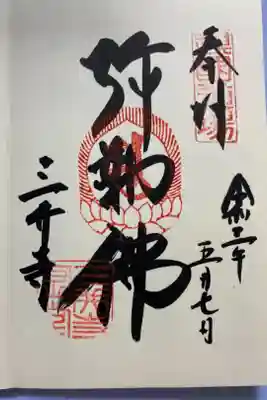 奉拝
令和年
五月七日
弥勒佛
三井寺